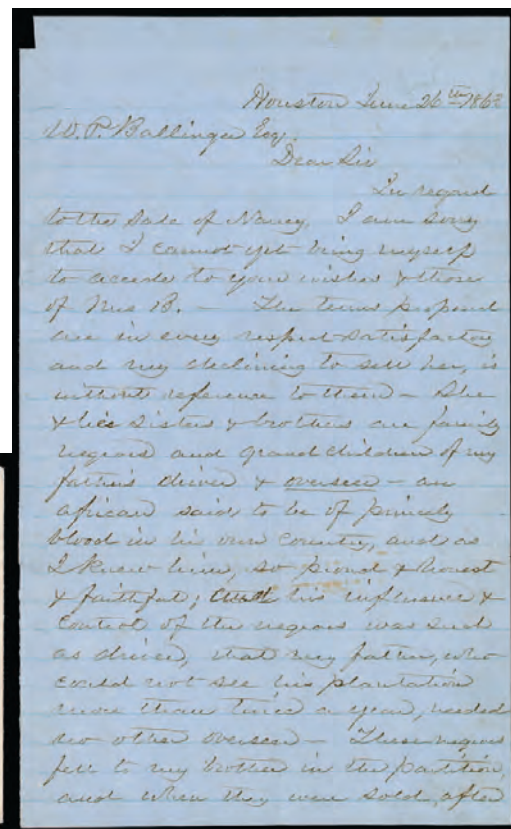 Houston June 26th 186
W. P. Ballinger Esq.
Dear Sir
In regard
to the Sale of Nancy, I am sorry
that I cannot yet bring myself
to accede to your wishes & those
of Mrs B. – The terms proposed
are in every respect satisfactory
and my declining to sell her, is
without reference to them – She
& her sisters & brothers are family
negroes and grand children of my
father's driver & overseer – an
african said to be of princely
blood in his own country, and as
I knew him, so proud & honest
& faithful; his influence &
control of the negroes was such
as driver, that my father, who
could not see his plantation
more than twice a year, needed
no other overseer – These negroes
fell to my brother in the partition,
and when they were sold, after